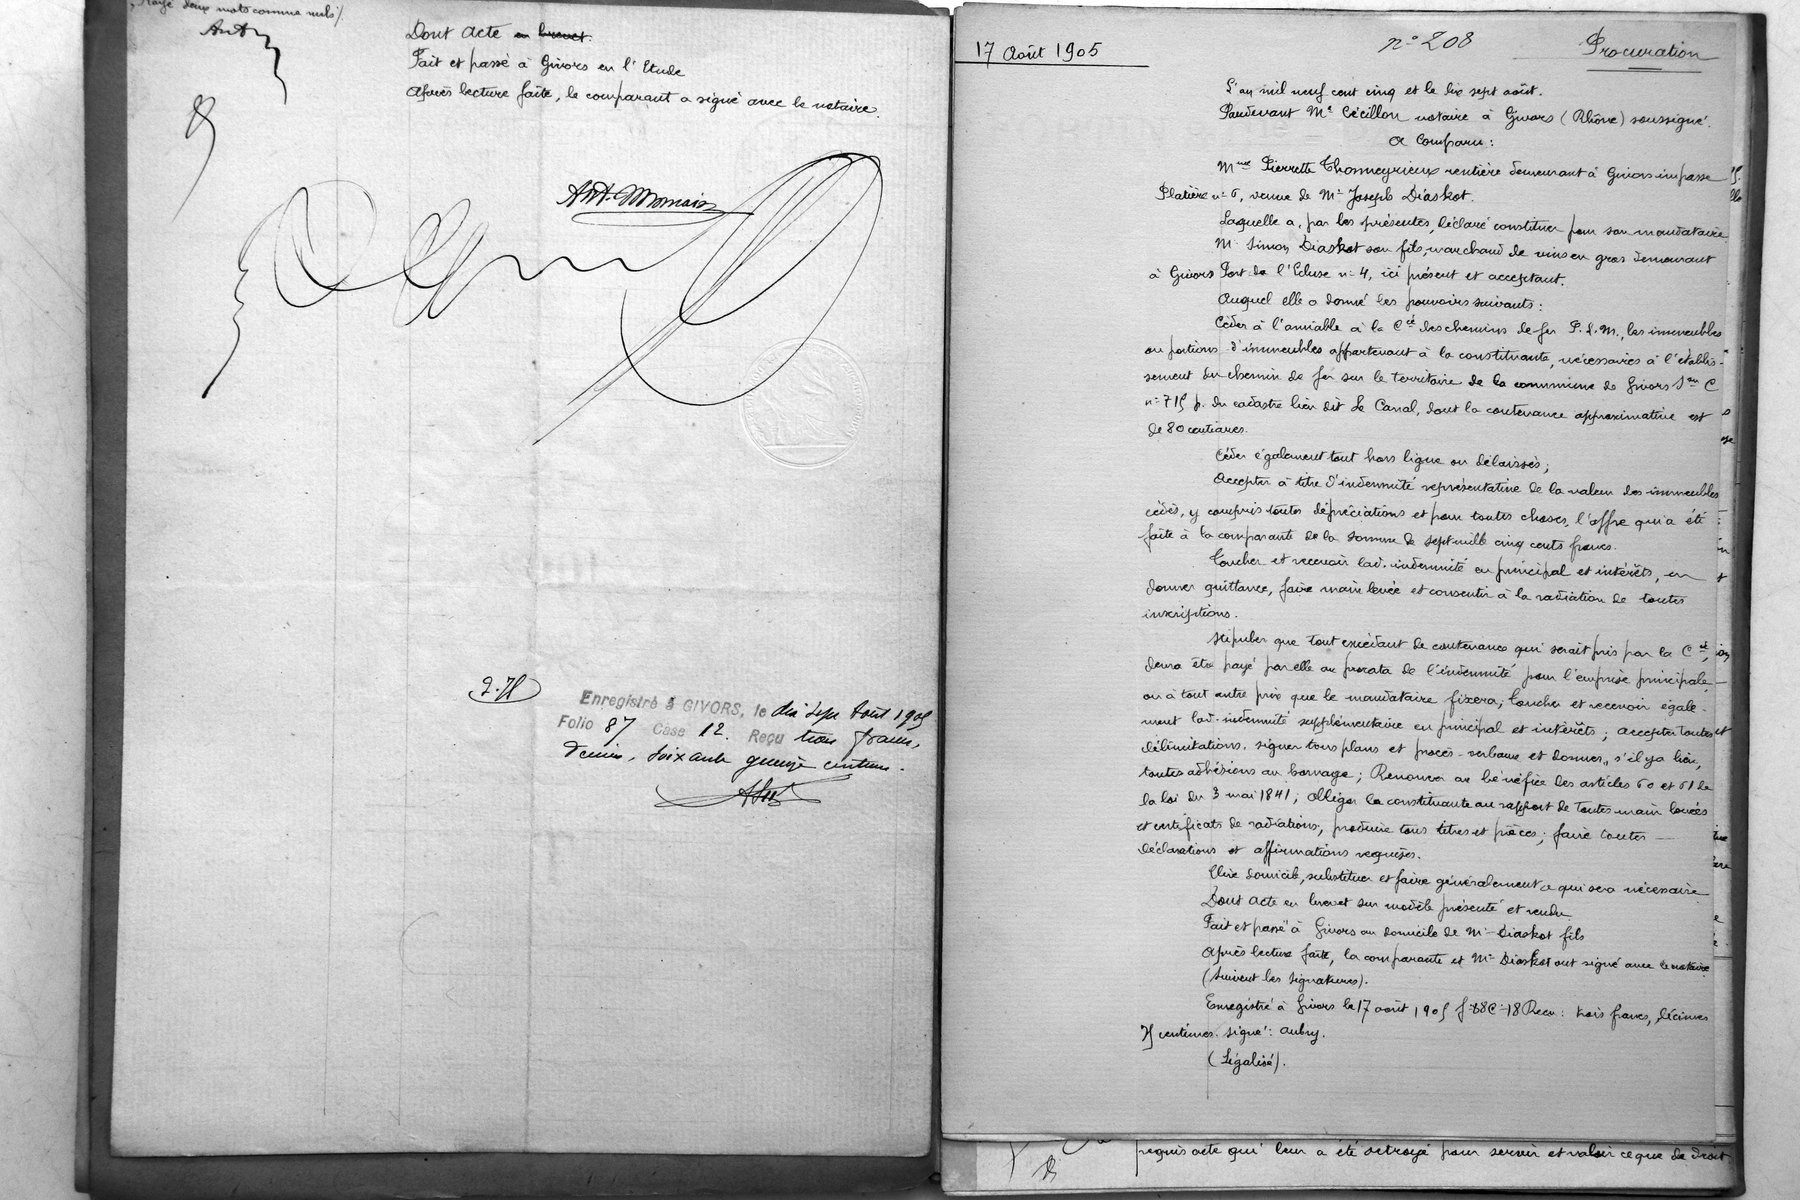 Rayé deux mots comme nuls /.
Ant
Dont acte en brevet.
Fait et passé à Givors en l'Etude
Après lecture faite, le comparant a signé avec le notaire.
Ant.
Enregistré à GIVORS, le dix sept Août 1905
Folio 87 Case 12. Reçu trois francs,
Décimes, soixante quinze centimes.
17 Août 1905
n° 208
Procuration
L'an mil neuf cent cinq et le dix sept août.
Pardevant Me Cécillon notaire à Givors (Rhône) soussigné.
A Comparu :
Mme Pierrette Thomneyrieux rentière demeurant à Givors impasse
Platière n° 6, veuve de Mr Joseph Diaskot.
Laquelle a, par les présentes, déclaré constituer pour son mandataire
Mr Simon Diaskot son fils, marchand de vins en gros demeurant
à Givors Port de l'Ecluse n° 4, ici présent et acceptant.
Auquel elle a donné les pouvoirs suivants :
Céder à l'amiable à la Cie des chemins de fer P.L.M. les immeubles
ou portions d'immeubles appartenant à la constituante, nécessaires à l'établis-
sement du chemin de fer sur le territoire de la commune de Givors Son C
n° 715 p. du cadastre lieu dit Le Canal, dont la contenance approximative est
de 80 centiares.
Céder également tout hors ligne ou délaissés ;
Accepter à titre d'indemnité représentative de la valeur des immeubles
cédés, y compris toutes dépréciations et pour toutes choses, l'offre qui a été
faite à la comparante de la somme de sept mille cinq cents francs.
Toucher et recevoir lad. indemnité en principal et intérêts, en
donner quittance, faire main levée et consentir à la radiation de toutes
inscriptions.
Stipuler que tout excédant de contenance qui serait pris par la Cie,
devra être payé par elle au prorata de l'indemnité pour l'emprise principale
ou à tout autre prix que le mandataire fixera, toucher et recevoir égale-
ment lad. indemnité supplémentaire en principal et intérêts ; accepter toutes
délimitations, signer tous plans et procès-verbaux et donner, s'il y a lieu,
toutes adhésions au bornage ; Renoncer au bénéfice des articles 60 et 61 de
la loi du 3 mai 1841 ; obliger la constituante au rapport de toutes main levées
et certificats de radiations, produire tous titres et pièces ; faire toutes
déclarations et affirmations requises.
Elire domicile, substituer et faire généralement ce qui sera nécessaire
Dont acte en brevet sur modèle présenté et rendu
Fait et passé à Givors au domicile de Mr Diaskot fils
Après lecture faite, la comparante et Mr Diaskot ont signé avec le notaire
(Suivent les signatures).
Enregistré à Givors le 17 août 1905 f° 88 C° 18 Reçu : trois francs, Décimes
75 centimes. signé : Aubry.
(Légalisé).
requis acte qui leur a été octroyé pour servir et valoir ce que de droit